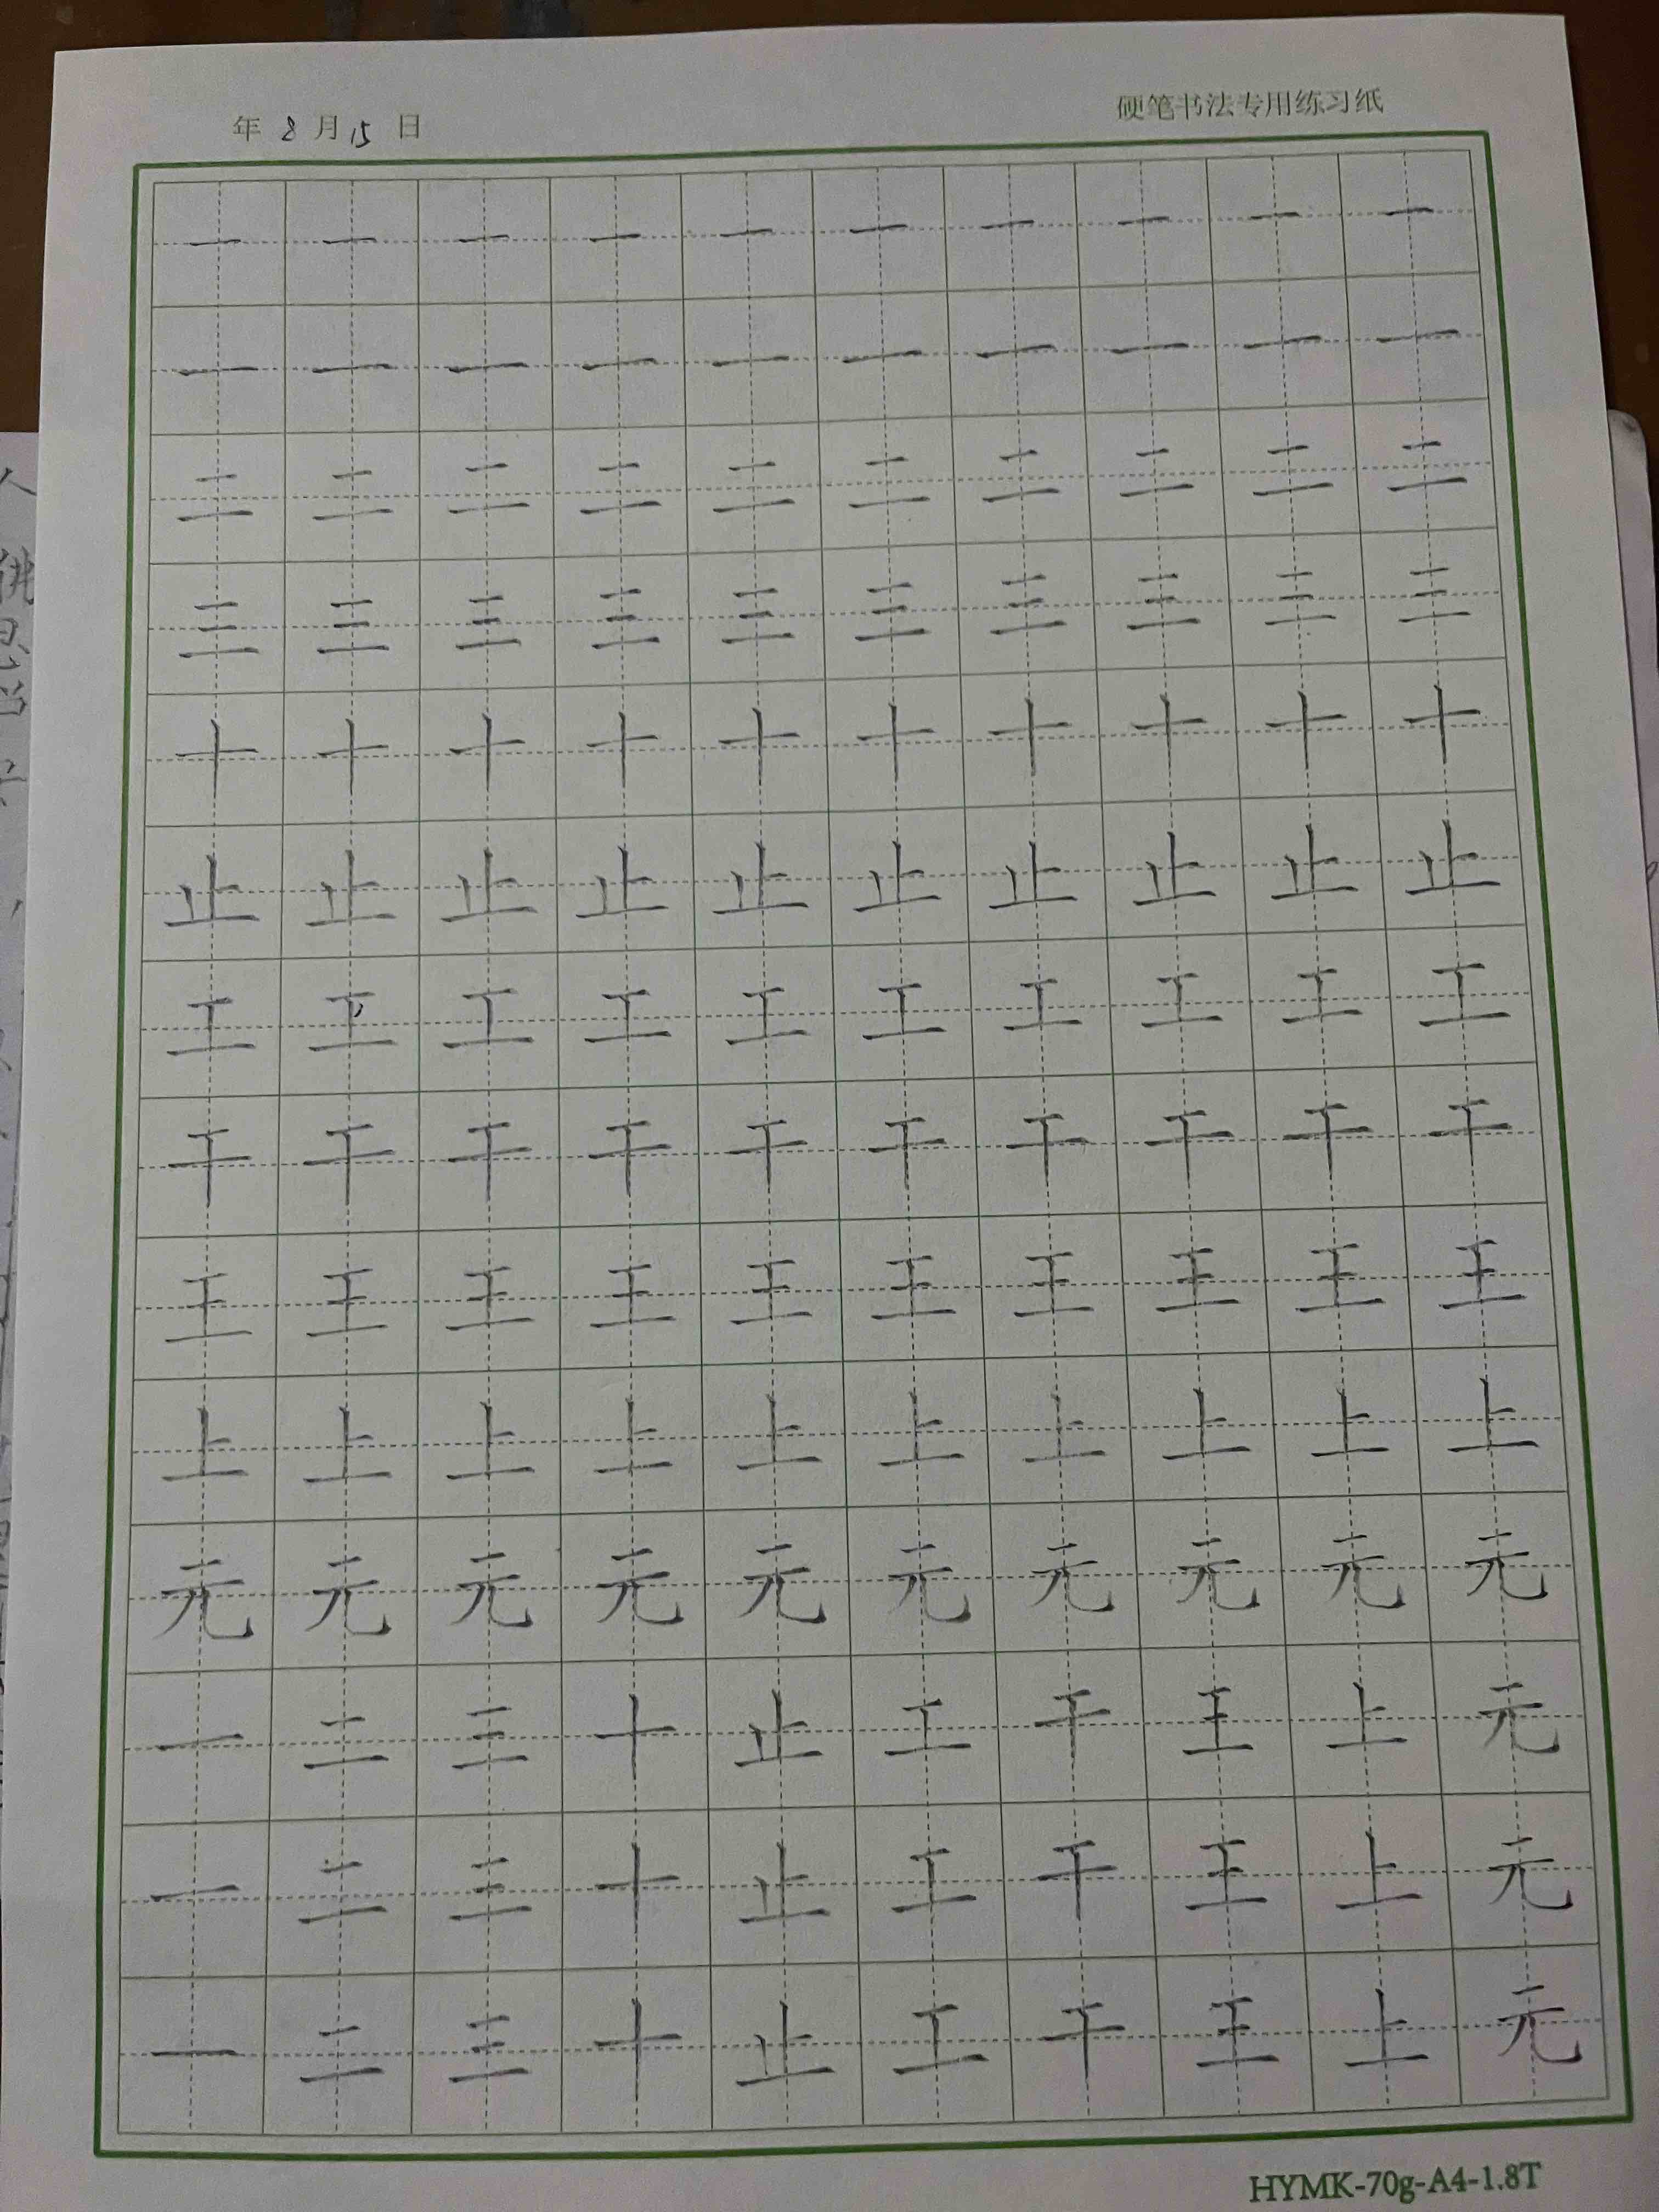 年 8 月 15 日
硬笔书法专用练习纸
一 一 一 一 一 一 一 一 一 一
一 一 一 一 一 一 一 一 一 一
二 二 二 二 二 二 二 二 二 二
三 三 三 三 三 三 三 三 三 三
十 十 十 十 十 十 十 十 十 十
止 止 止 止 止 止 止 止 止 止
工 工 工 工 工 工 工 工 工 工
干 干 干 干 干 干 干 干 干 干
王 王 王 王 王 王 王 王 王 王
上 上 上 上 上 上 上 上 上 上
元 元 元 元 元 元 元 元 元 元
一 二 三 十 止 工 干 王 上 元
一 二 三 十 止 工 干 王 上 元
一 二 三 十 止 工 干 王 上 元
HYMK-70g-A4-1.8T